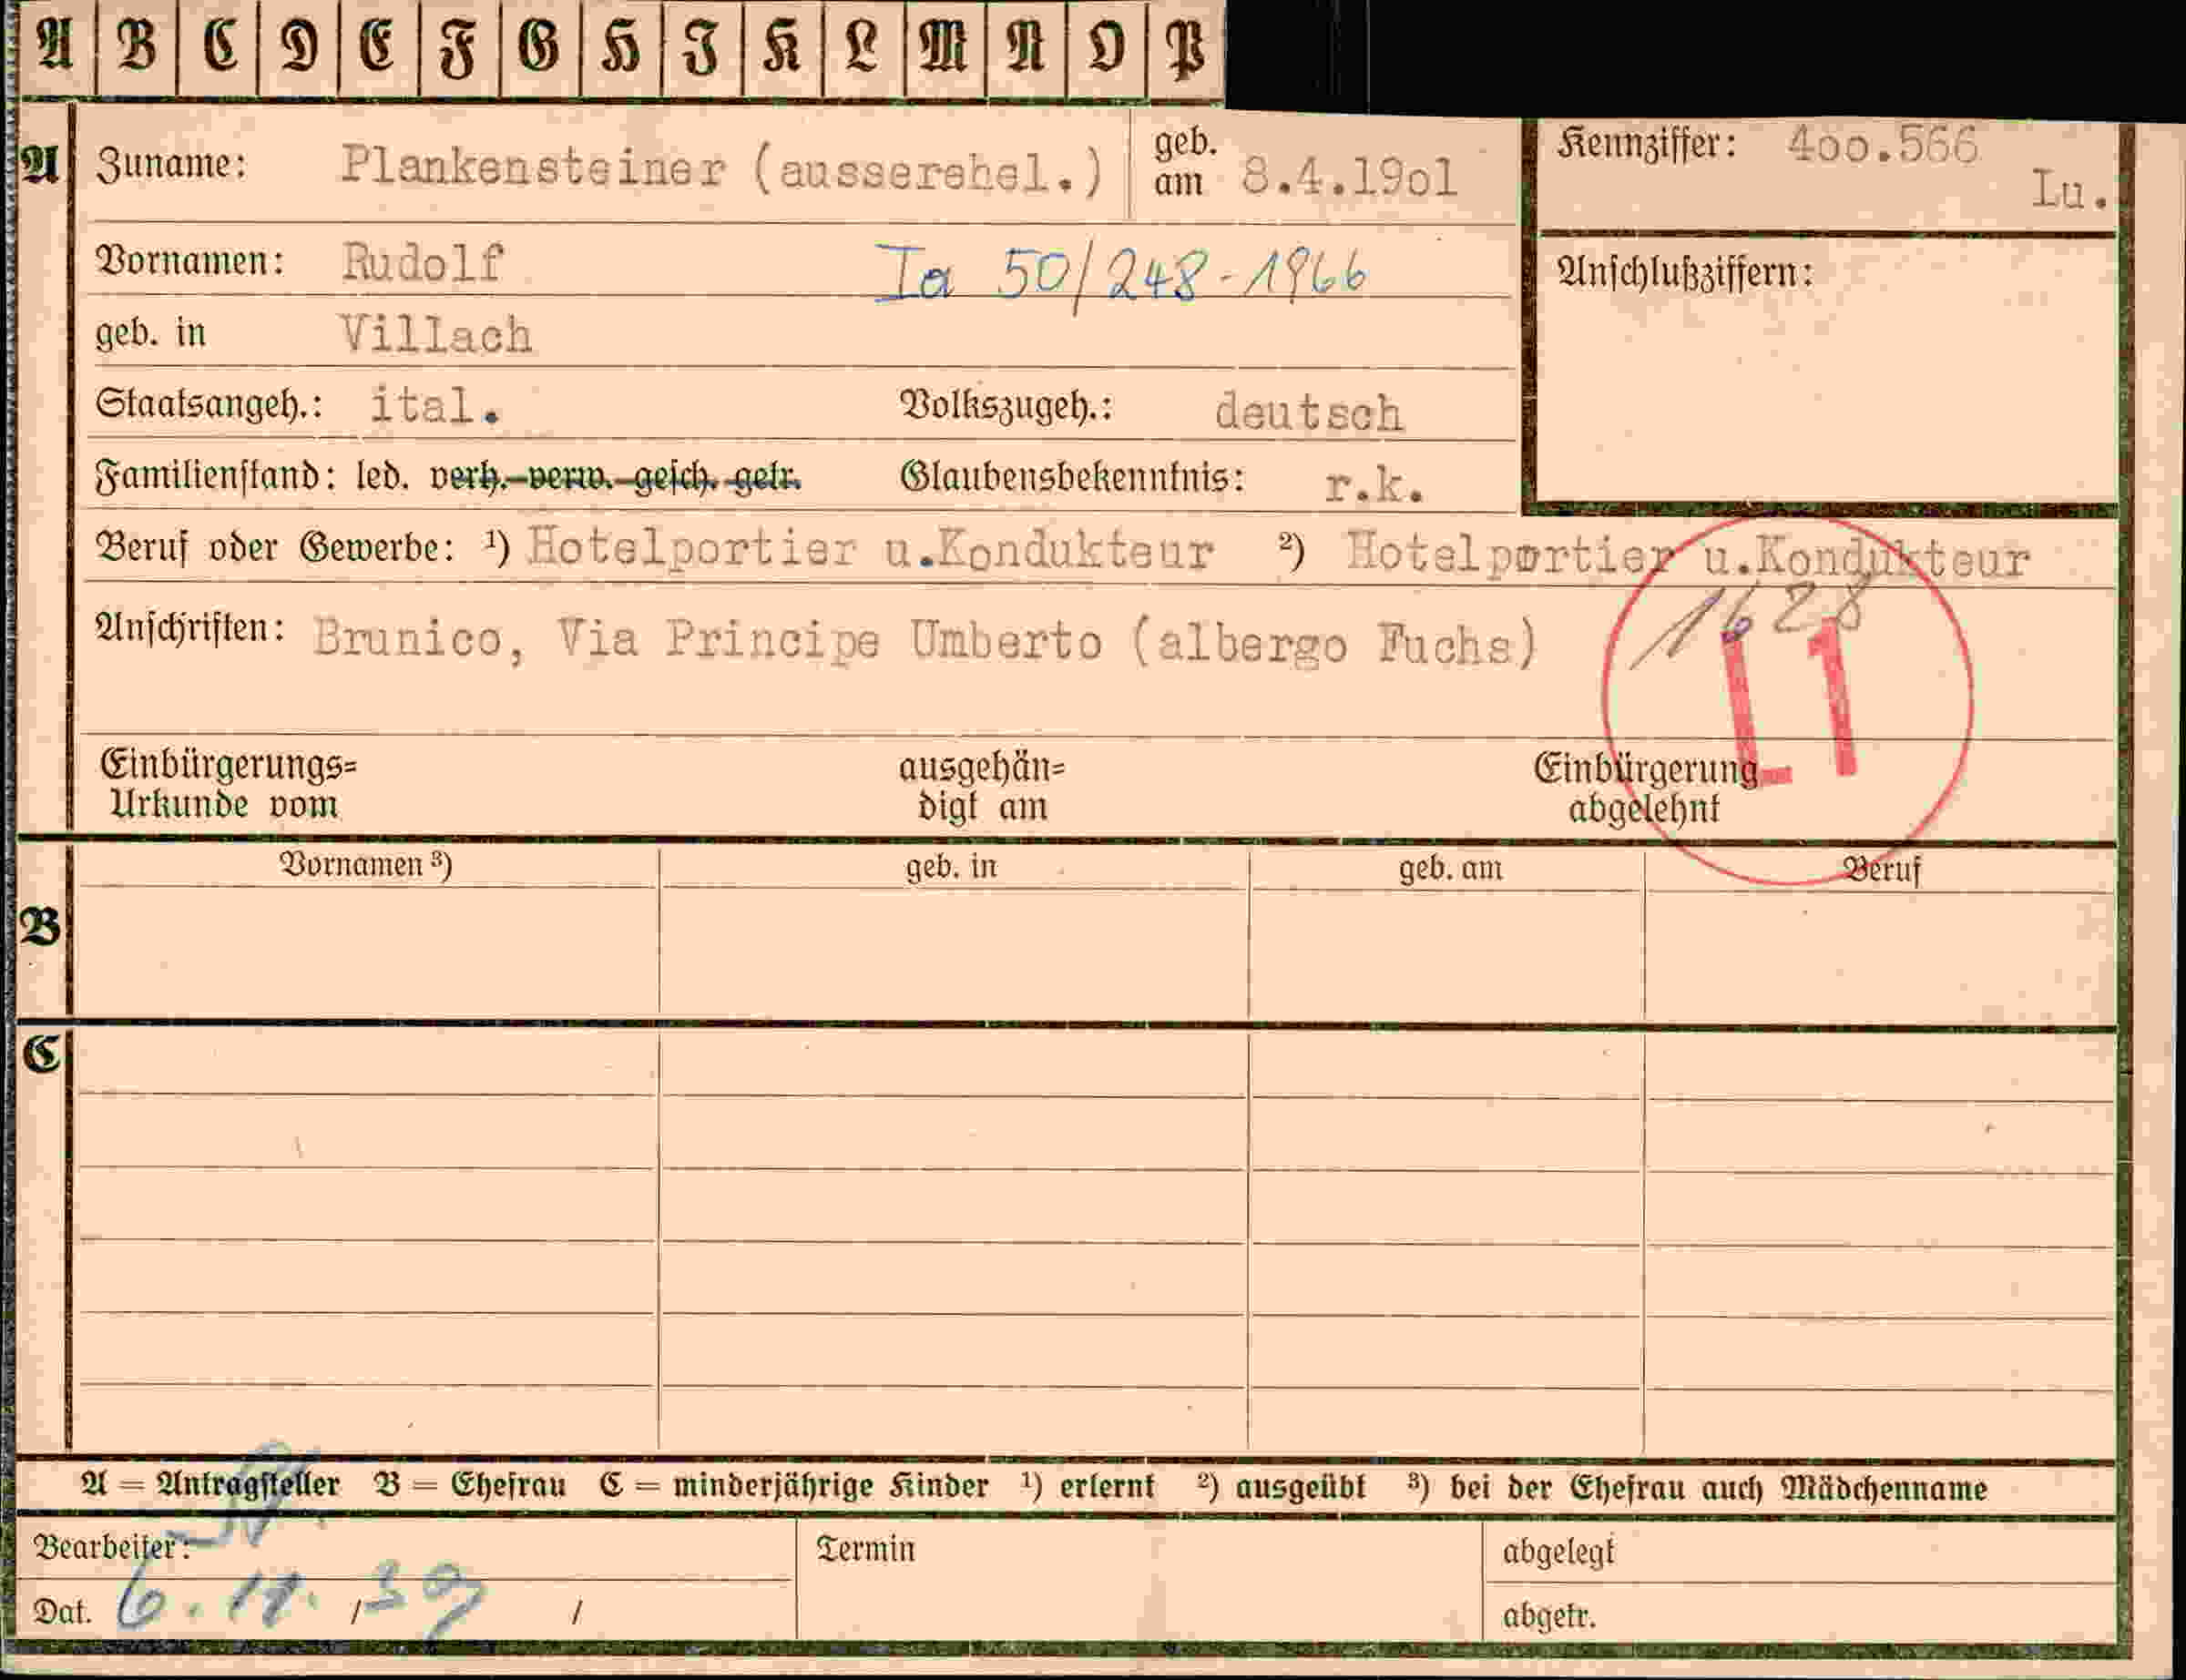 A B C D E F G H I K L M N O P
A Zuname: Plankensteiner (ausserehel.) geb. am 8.4.19o1
Kennziffer: 4oo.566
Lu.
Vornamen: Rudolf Ia 50/248-1966
Anschlußziffern:
geb. in Villach
Staatsangeh.: ital. Volkszugeh.: deutsch
Familienstand: led. verh. verw. gesch. getr. Glaubensbekenntnis: r.k.
Beruf oder Gewerbe: ¹) Hotelportier u.Kondukteur ²) Hotelportier u.Kondukteur
1628
Anschriften: Brunico, Via Principe Umberto (albergo Fuchs)
L1
Einbürgerungs= ausgehän= Einbürgerung
Urkunde vom digt am abgelehnt
Vornamen ³) geb. in geb. am Beruf
B
C
A = Antragsteller B = Ehefrau C = minderjährige Kinder ¹) erlernt ²) ausgeübt ³) bei der Ehefrau auch Mädchenname
Bearbeiter: Termin abgelegt
Dat. 6.11./39 / abgetr.